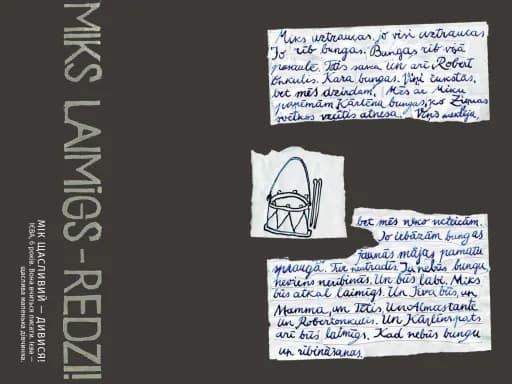 MIKS LAIMĪGS – REDZI!
МІК ЩАСЛИВИЙ – ДИВИСЯ!
ІЄВА, 6 років. Вона вчиться писати. Ієва —
щаслива маленька дівчинка.
Miks uztraucas, jo visi uztraucas.
Jo rīb bungas. Bungas rīb visā
pasaulē. Tētis saka un arī Robert
onkulis. Kara bungas. Viņi čukstas,
bet mēs dzirdam. Mēs ar Miku
paņēmām Kārlēna bungas, ko Ziemas
svētkos vecītis atnesa. Viņš meklēja,
bet mēs neko neteicām.
Jo iebāzām bungas
jaunās mājas pamatu
spraugā. Tur neatradīs. Ja nebūs bungu,
neviens neribinās. Un būs labi. Miks
būs atkal laimīgs. Un Ieva būs, un
Mamma, un Tētis. Un Almastante
Un Robertonkulis. Un Kārlēnpats
arī būs laimīgs. Kad nebūs bungu
un ribināšanas.